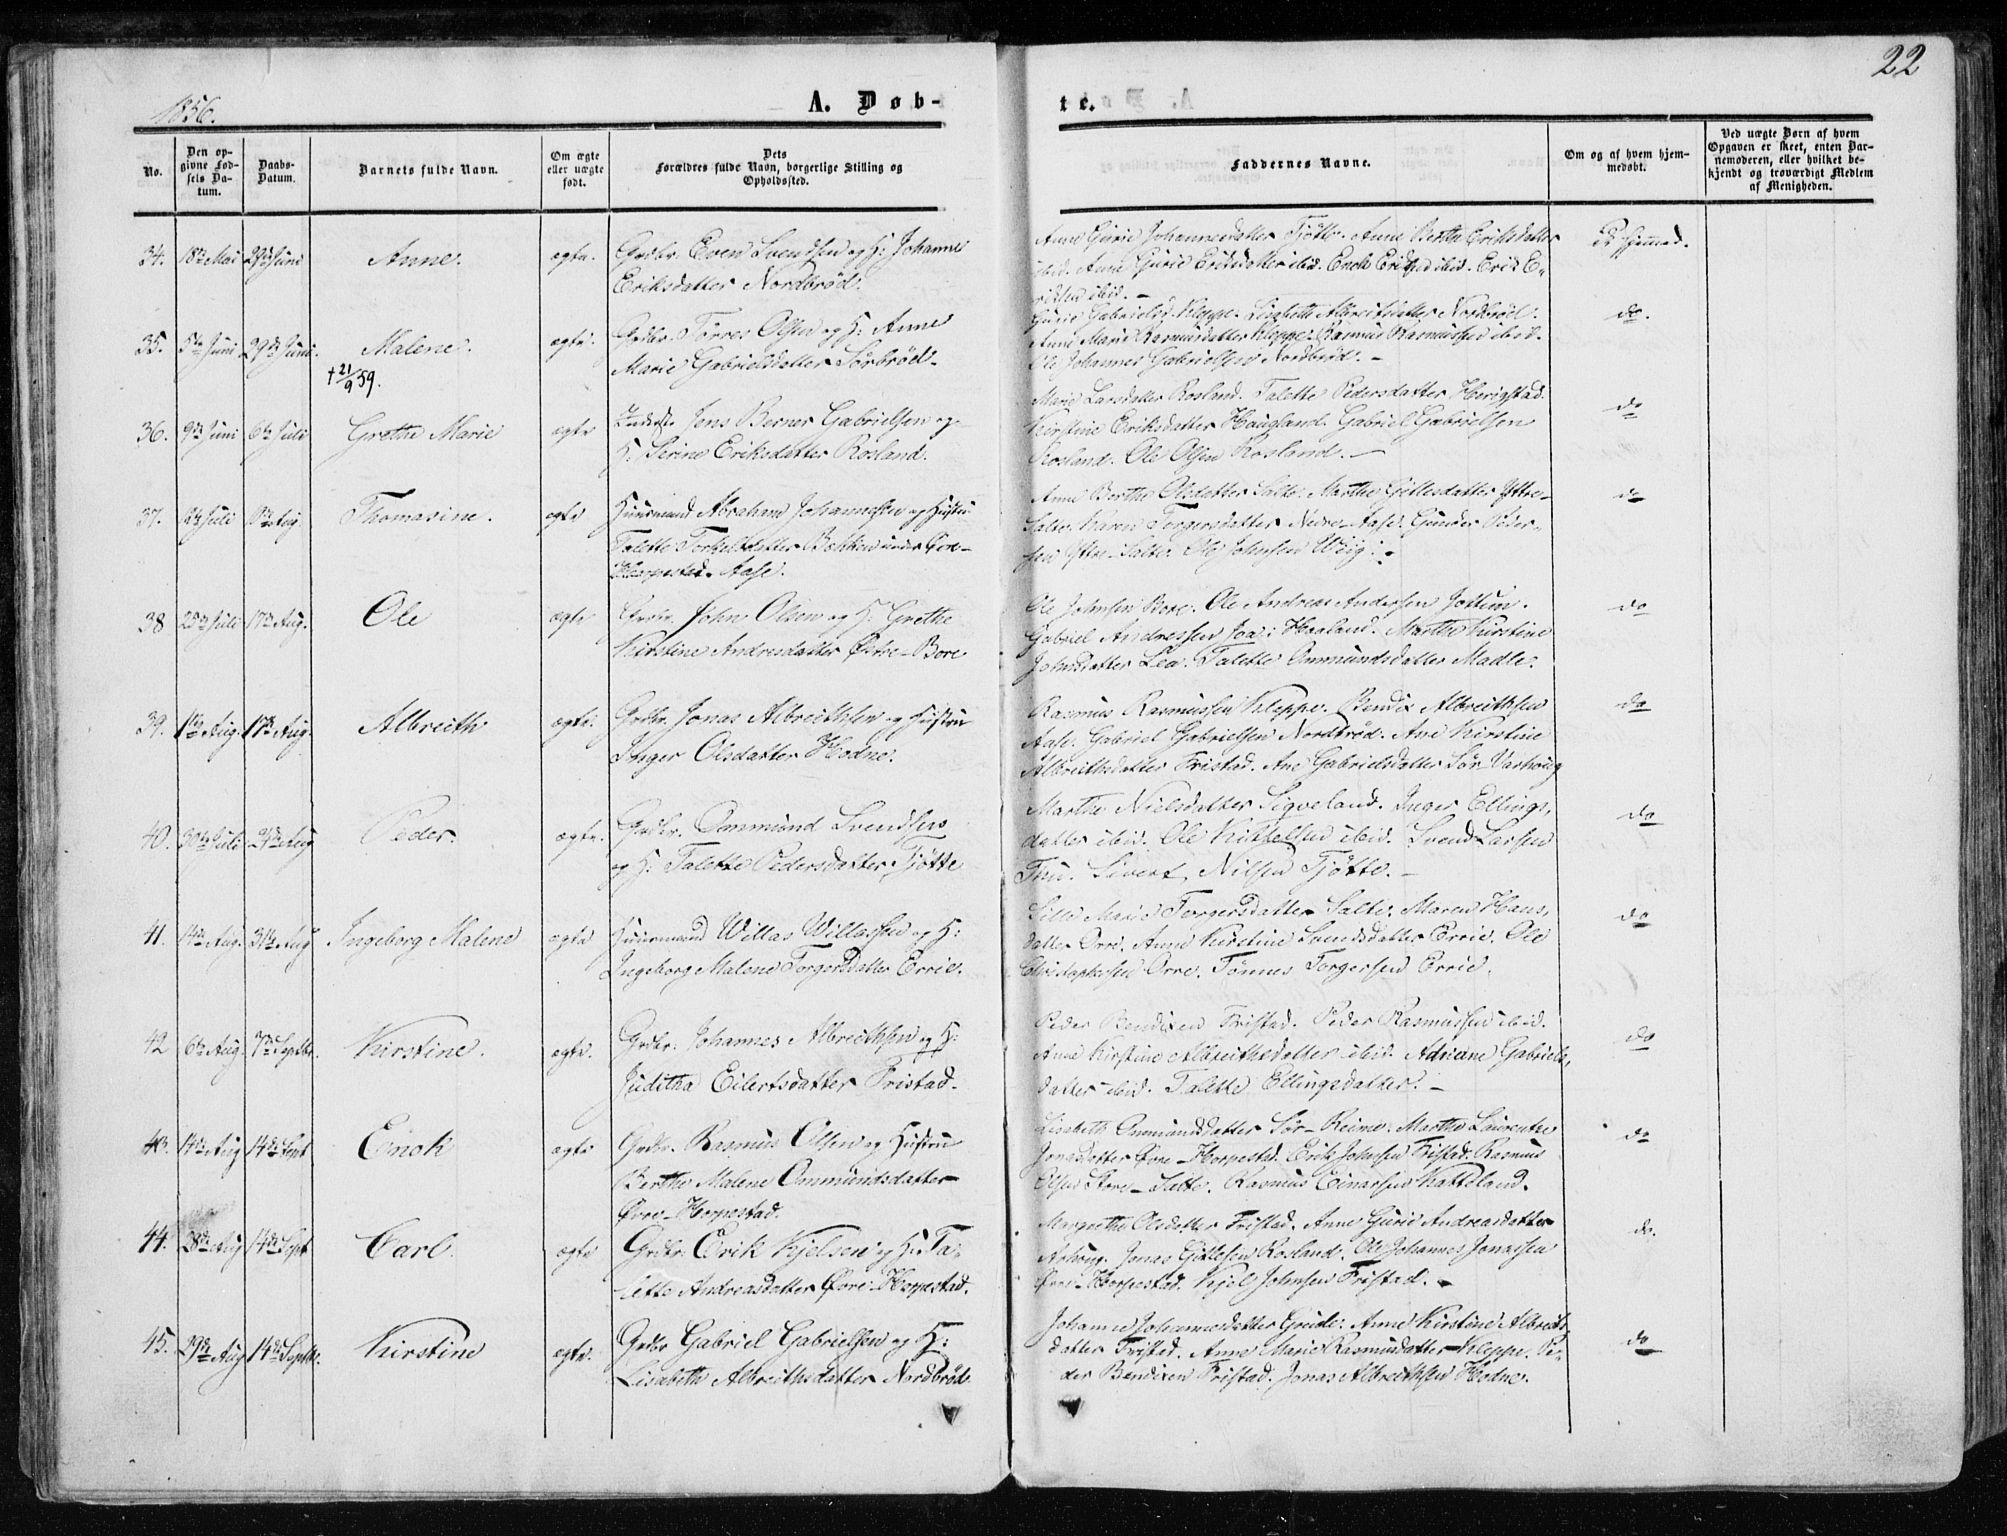 22
1856.
A. Døb-
te.
No.
Den op-
givne Fød-
sels Da-
tum.
Daabs-
Datum.
Barnets fulde Navn.
Om ægte
eller uægte
født.
Dets
Forældres fulde Navn, borgerlige Stilling og
Opholdssted.
Faddernes Navne.
Om og af hvem hjem-
medøbt.
Ved uægte Børn af hvem
Opgaven er skeet, enten Bar-
nemoderen, eller hvilket be-
kjendt og troværdigt Medlem
af Menigheden.
34. 18de Mai 29de Juni Anne. ægte. Grdbr. Even Svendsen og H: Johanne
Eriksdatter Nordbrød.
Anne Gurie Johannesdatter Tjøtte. Anne Berthe Eriksdatter
ibid. Anne Gurie Eriksdatter ibid. Enok Eriksen ibid. Erik E-
riksen ibid. –
Ei hjemmed.
35. 5te Juni 29de Juni. Malene. ægte. Grdbr. Tørres Olsen og H: Anne
Marie Gabrielsdatter Sørbrød.
† 21/9 59.
Gurie Gabrielsd. Kleppe. Lisabeth Albreitsdatter Nordbrød.
Anne Marie Rasmusdatter Kleppe. Rasmus Rasmussen ibid.
Ole Johannes Gabrielsen Nordbrød. –
do.
36. 9de Juni 6te Juli Grethe Marie ægte Jens Berner Gabrielsen og
H: Serine Eriksdatter Rosland.
Marie Larsdatter Rosland. Talette Pedersdatter Herigstad.
Kirstine Eriksdatter Haugland. Gabriel Gabrielsen
Rosland. Ole Olsen Rosland. –
do
37. Juli Aug. Thomasine. ægte Huusmand Abraham Johannessen og Hustru
Talette Torkelsdatter Bakken under Øvre-
Horpestad. Aase.
Anne Berthe Olsdatter Salte. Marthe Gitlesdatter Yttre-
Salte. Karen Torgersdatter Nedre-Aase. Gunder Peder-
sen Yttre-Salte. Ole Johnsen Wiig. –
do
38 25de Juli 17de Aug. Ole ægte Grdbr. John Olsen og H: Grethe
Kirstine Andreasdatter Øvre-Bore
Ole Johnsen Bore. Ole Andreas Andersen Jottun.
Gabriel Andreassen Joa: Haaland. Marthe Kirstine
Johnsdatter Lea. Talette Ommundsdatter Madle.
do
39. 1ste Aug. 17de Aug. Albreith ægte. Grdbr. Jonas Albreithsen og Hustru
Inger Olsdatter Hodne.
Rasmus Rasmussen Kleppe. Bendix Albreithsen
Aase. Gabriel Gabrielsen Nordbrød. Ane Kirstine
Albreithsdatter Fristad. Ane Gabrielsdatter Sør Varhoug
do
40. 30te Juli 24de Aug Peder. ægte. Grdbr. Ommund Svendsen
og H: Talette Pedersdatter Tjøtte
Marthe Nielsdatter Sigveland. Inger Ellings-
datter ibid. Ole Kittelsen ibid. Svend Larsen
Thu. Sivert Nilsen Tjøtte. –
do
41. 14de Aug. 31te Aug Ingeborg Malene ægte Huusmand Willas Willassen og H:
Ingeborg Malene Torgersdatter Errie.
Sille Marie Torgersdatter Salte. Maren Hans-
datter Orre. Anne Kirstine Svendsdatter Errie. Ole
Christophersen Orre. Tønnes Torgersen Errie.
do
42 6te Aug. 7de Septbr. Kirstine. ægte. Grdbr. Johannes Albreithsen og H:
Juditha Eilertsdatter Fristad.
Peder Bendixen Fristad. Peder Rasmussen ibid.
Anne Kirstine Albreithsdatter ibid. Adriane Gabriels-
datter ibid. Talette Ellingsdatter. –
do
43. 14de Aug 14de Sept Enok ægte Grdbr. Rasmus Olsen og Hustru
Berthe Malene Ommundsdatter
Øvre-Horpestad.
Lisabeth Ommundsdatter Sør-Reime. Marthe Laurentse
Jonasdatter Øvre-Horpestad. Erik Johnsen Fristad. Rasmus
Olsen Store-Salte. Rasmus Einarsen Katteland.
do
44. 28de Aug 14de Sept Carl. ægte Grdbr. Erik Kjelsen og H: Ta-
lette Andreasdatter Øvre-Horpestad.
Margrethe Olsdatter Fristad. Anne Gurie Andreasdatter
Jonas Gitlesen Rosland. Ole Johannes Jonassen
Øvre-Horpestad. Kjel Johnsen Fristad. –
do.
45. 29de Aug 14de Septbr. Kirstine ægte. Grdbr Gabriel Gabrielsen og H:
Lisabeth Albreithsdatter Nordbrød.
Johanne Johannesdatter Grude. Anne Kirstine Albreits-
datter Fristad. Anne Marie Rasmusdatter Kleppe. Pe-
der Bendixen Fristad. Jonas Albreithsen Hodne.
do